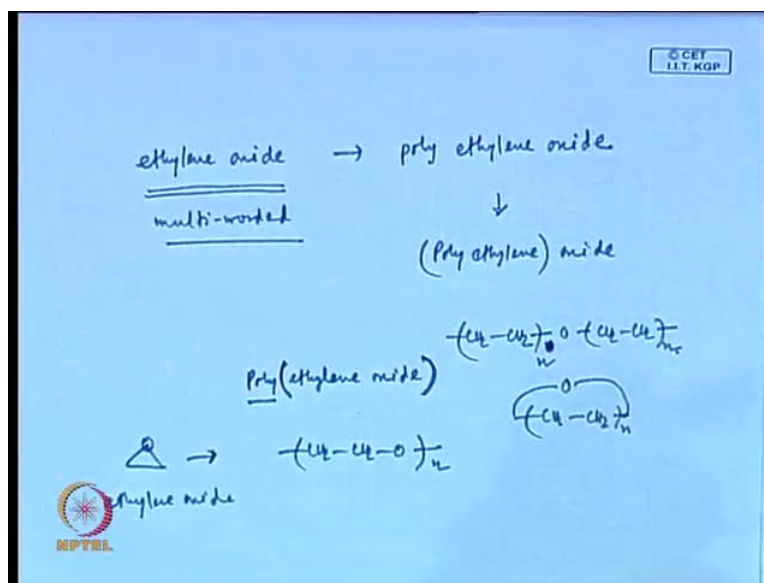 © CET
I.I.T. KGP
ethylene oxide → poly ethylene oxide
multi-worded
↓
(Poly ethylene) oxide
-(CH2-CH2)n O -(CH2-CH2)n
Poly(ethylene oxide)
O
-(CH2-CH2)n
O → -(CH2-CH2-O)n
ethylene oxide
NPTEL